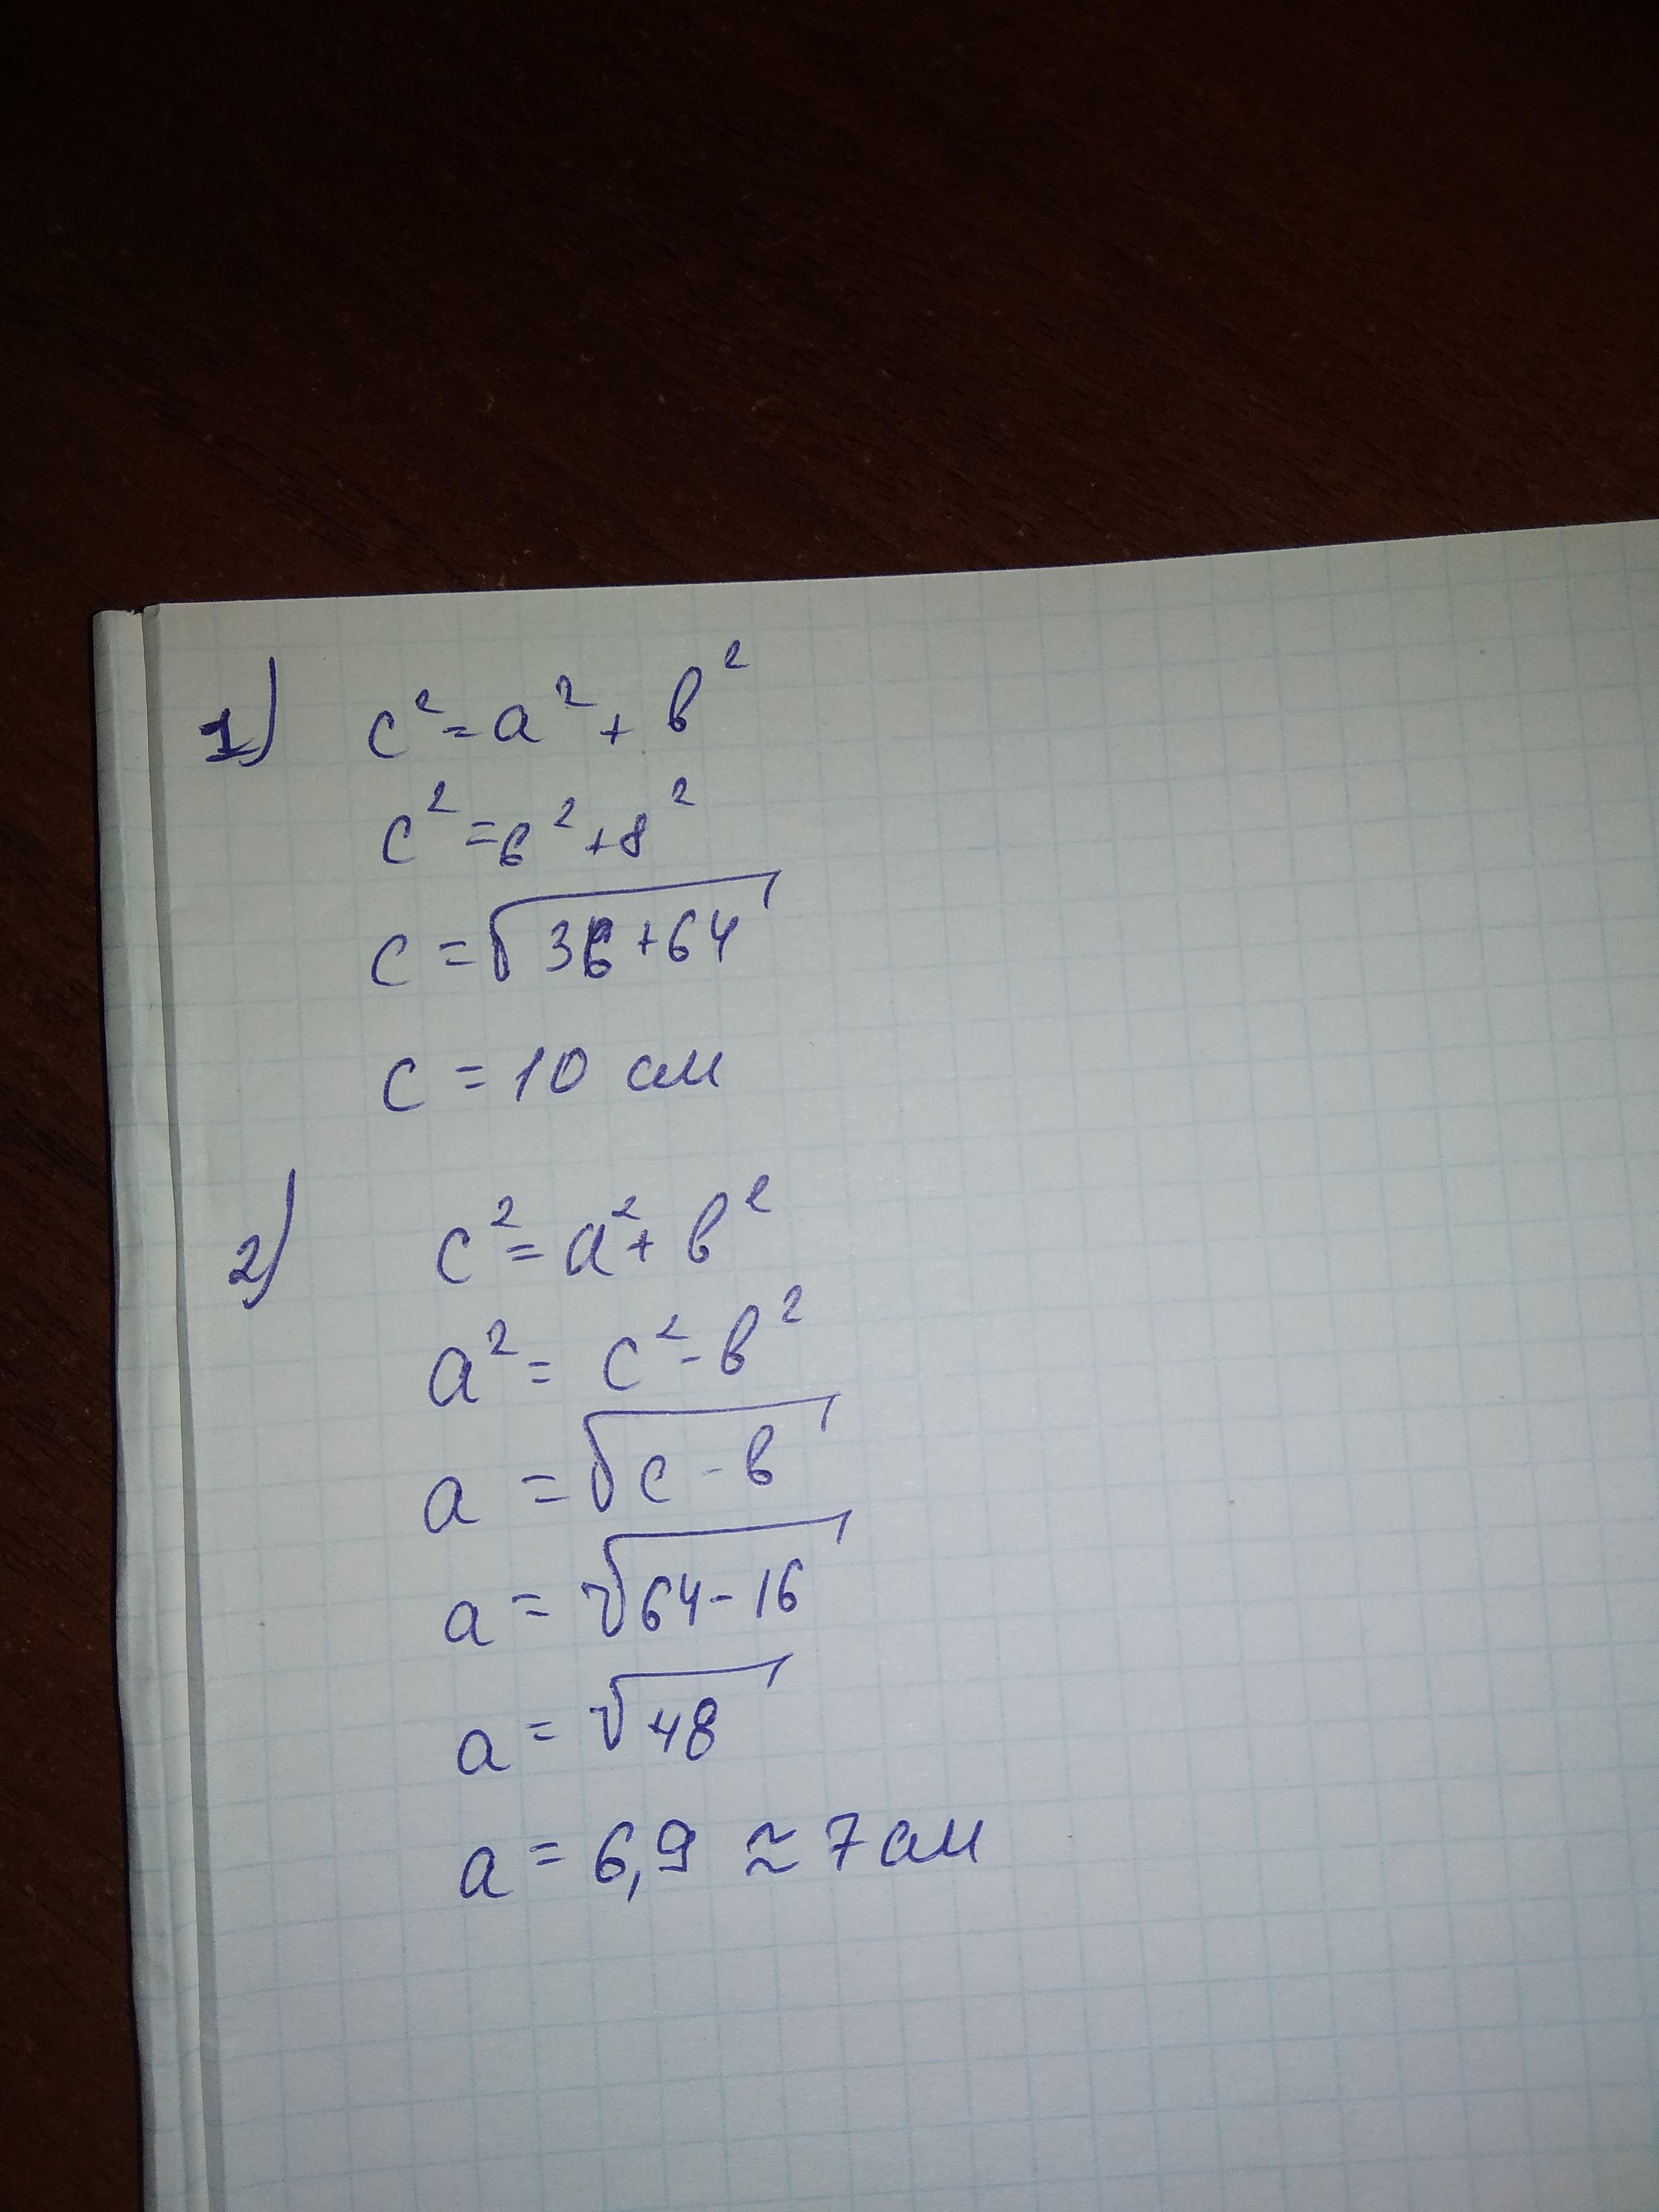 1) c² = a² + в²
c² = 6² + 8²
c = √36 + 64
c = 10 см
2) c² = a² + в²
a² = c² - в²
a = √c - в
a = √64 - 16
a = √48
a = 6,9 ≈ 7 см